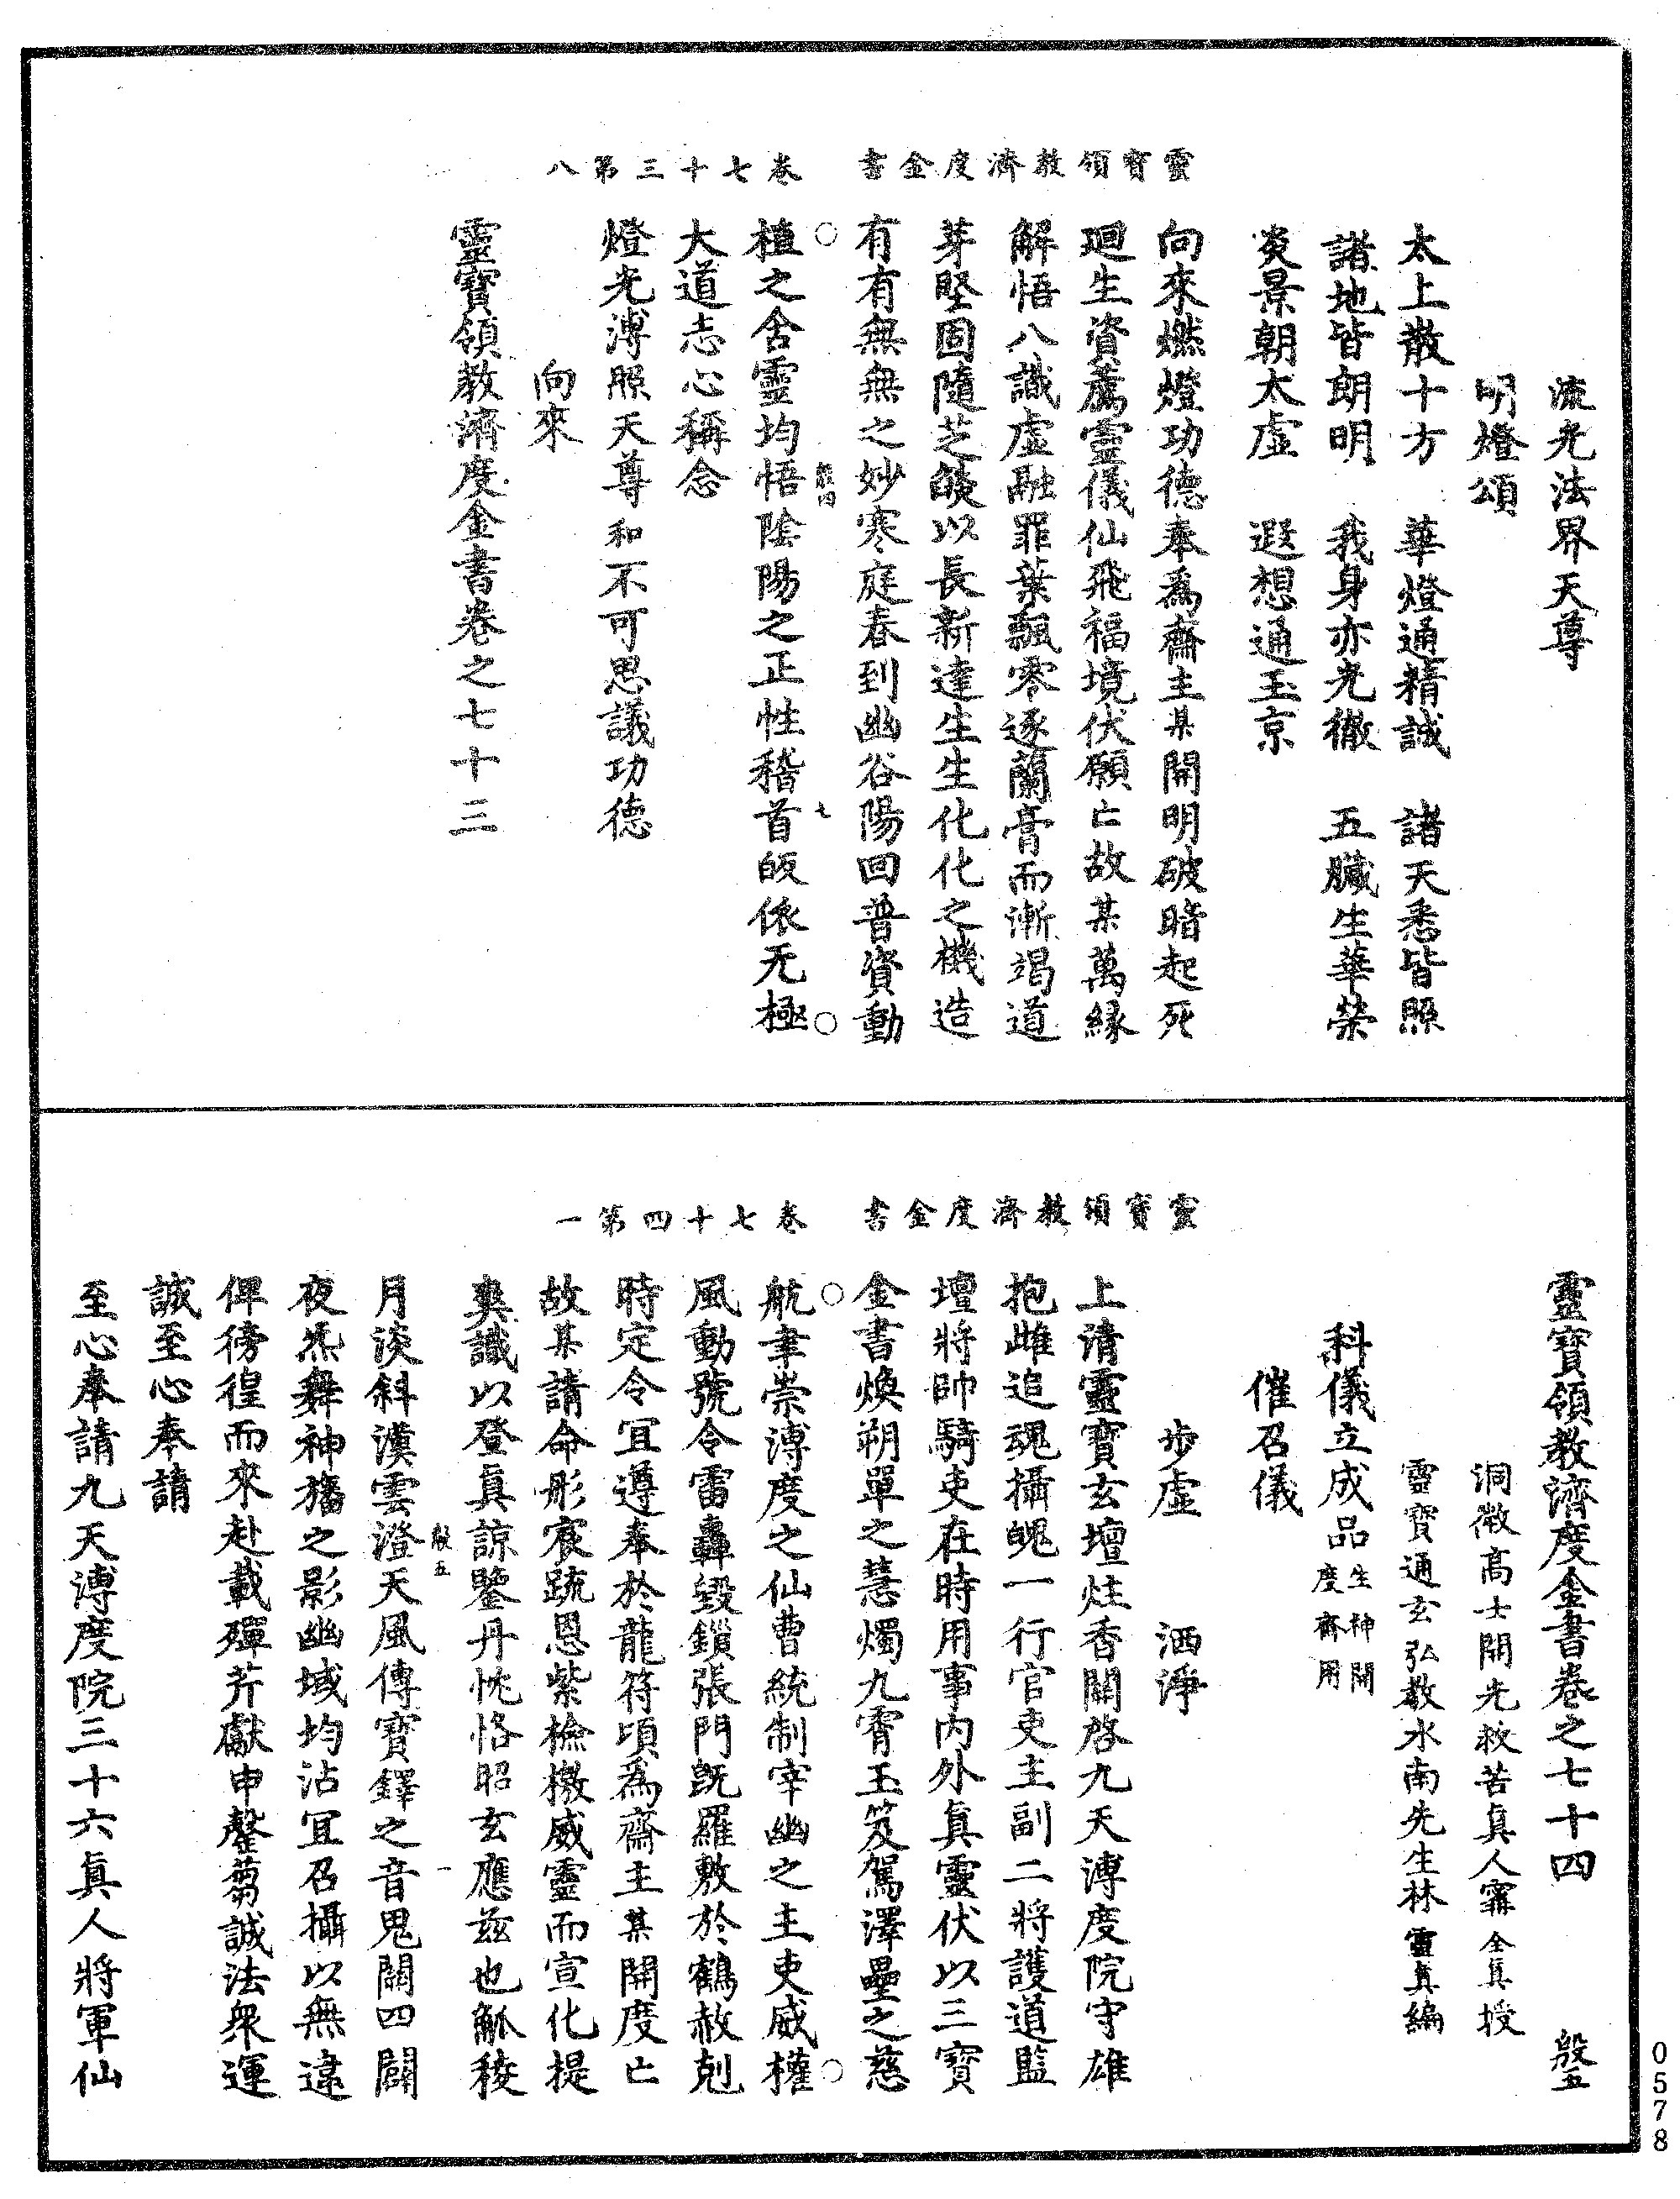 靈寶領教濟度金書　卷七十三第八
流光法界天尊
明燈頌
太上散十方　華燈通精誠　諸天悉皆照
諸地皆朗明　我身亦光徹　五臟生華榮
炎景朝太虛　遐想通玉京
向來燃燈功德奉為齋主某開明破暗起死
迴生資薦靈儀仙飛福境伏願亡故某萬緣
解悟八識虛融罪葉飄零逐蘭膏而漸竭道
芽堅固隨芝燄以長新達生生化化之機造
有有無無之妙寒庭春到幽谷陽回普資動
植之含靈均悟陰陽之正性稽首皈依无極
大道志心稱念
燈光溥照天尊和不可思議功德
向來
靈寶領教濟度金書卷之七十三
靈寶領教濟度金書卷之七十四　殷五
洞微高士開先救苦真人甯全真授
靈寶通玄弘教水南先生林靈真編
科儀立成品生神開度齋用
催召儀
步虛　洒淨
靈寶領教濟度金書　卷七十四第一
上清靈寶玄壇炷香關啓九天溥度院守雄
抱雌追魂攝魄一行官吏主副二將護道監
壇將帥騎吏在時用事內外真靈伏以三寶
金書煥朔單之慧燭九霄玉笈駕澤壘之慈
航聿崇溥度之仙曹統制宰幽之主吏威權
風動號令雷轟毀鎖張門既羅敷於鶴赦剋
時定令宜遵奉於龍符頃為齋主某開度亡
故某請命彤宸疏恩紫檢檄威靈而宣化提
爽識以登真諒鑒丹忱恪昭玄應茲也觚稜
月淡斜漢雲澄天風傳寶鐸之音鬼關四闢
殷五　一
夜炁舞神旛之影幽域均沾宜召攝以無違
俾徬徨而來赴載殫芹獻申罄芻誠法眾運
誠至心奉請
至心奉請九天溥度院三十六真人將軍仙
0578